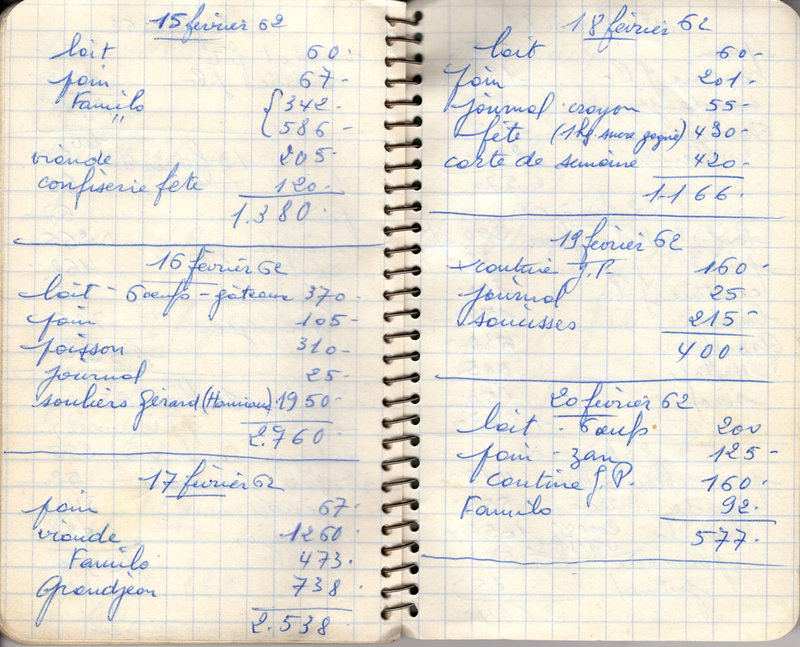 15 février 62
lait 60-
pain 67-
Familo { 342-
" 586-
viande 205-
confiserie fête 120-
1.380-
16 février 62
lait - 6 œufs - gâteaux 370-
pain 105-
poisson 310-
journal 25-
souliers Gérard 1950-
2.760-
17 février 62
pain 67-
viande 1260-
Familo 473-
Grandjean 738-
2.538-
18 février 62
lait 60-
pain 201-
journal - crayon 55-
fête (1 kg. sucre gagné) 430-
carte de semaine 420-
1.166-
19 février 62
cantine J.P. 160-
journal 25
saucisses 215-
400-
20 février 62
lait - 6 œufs 200
pain - zan 125-
cantine J.P. 160-
Familo 92-
577-